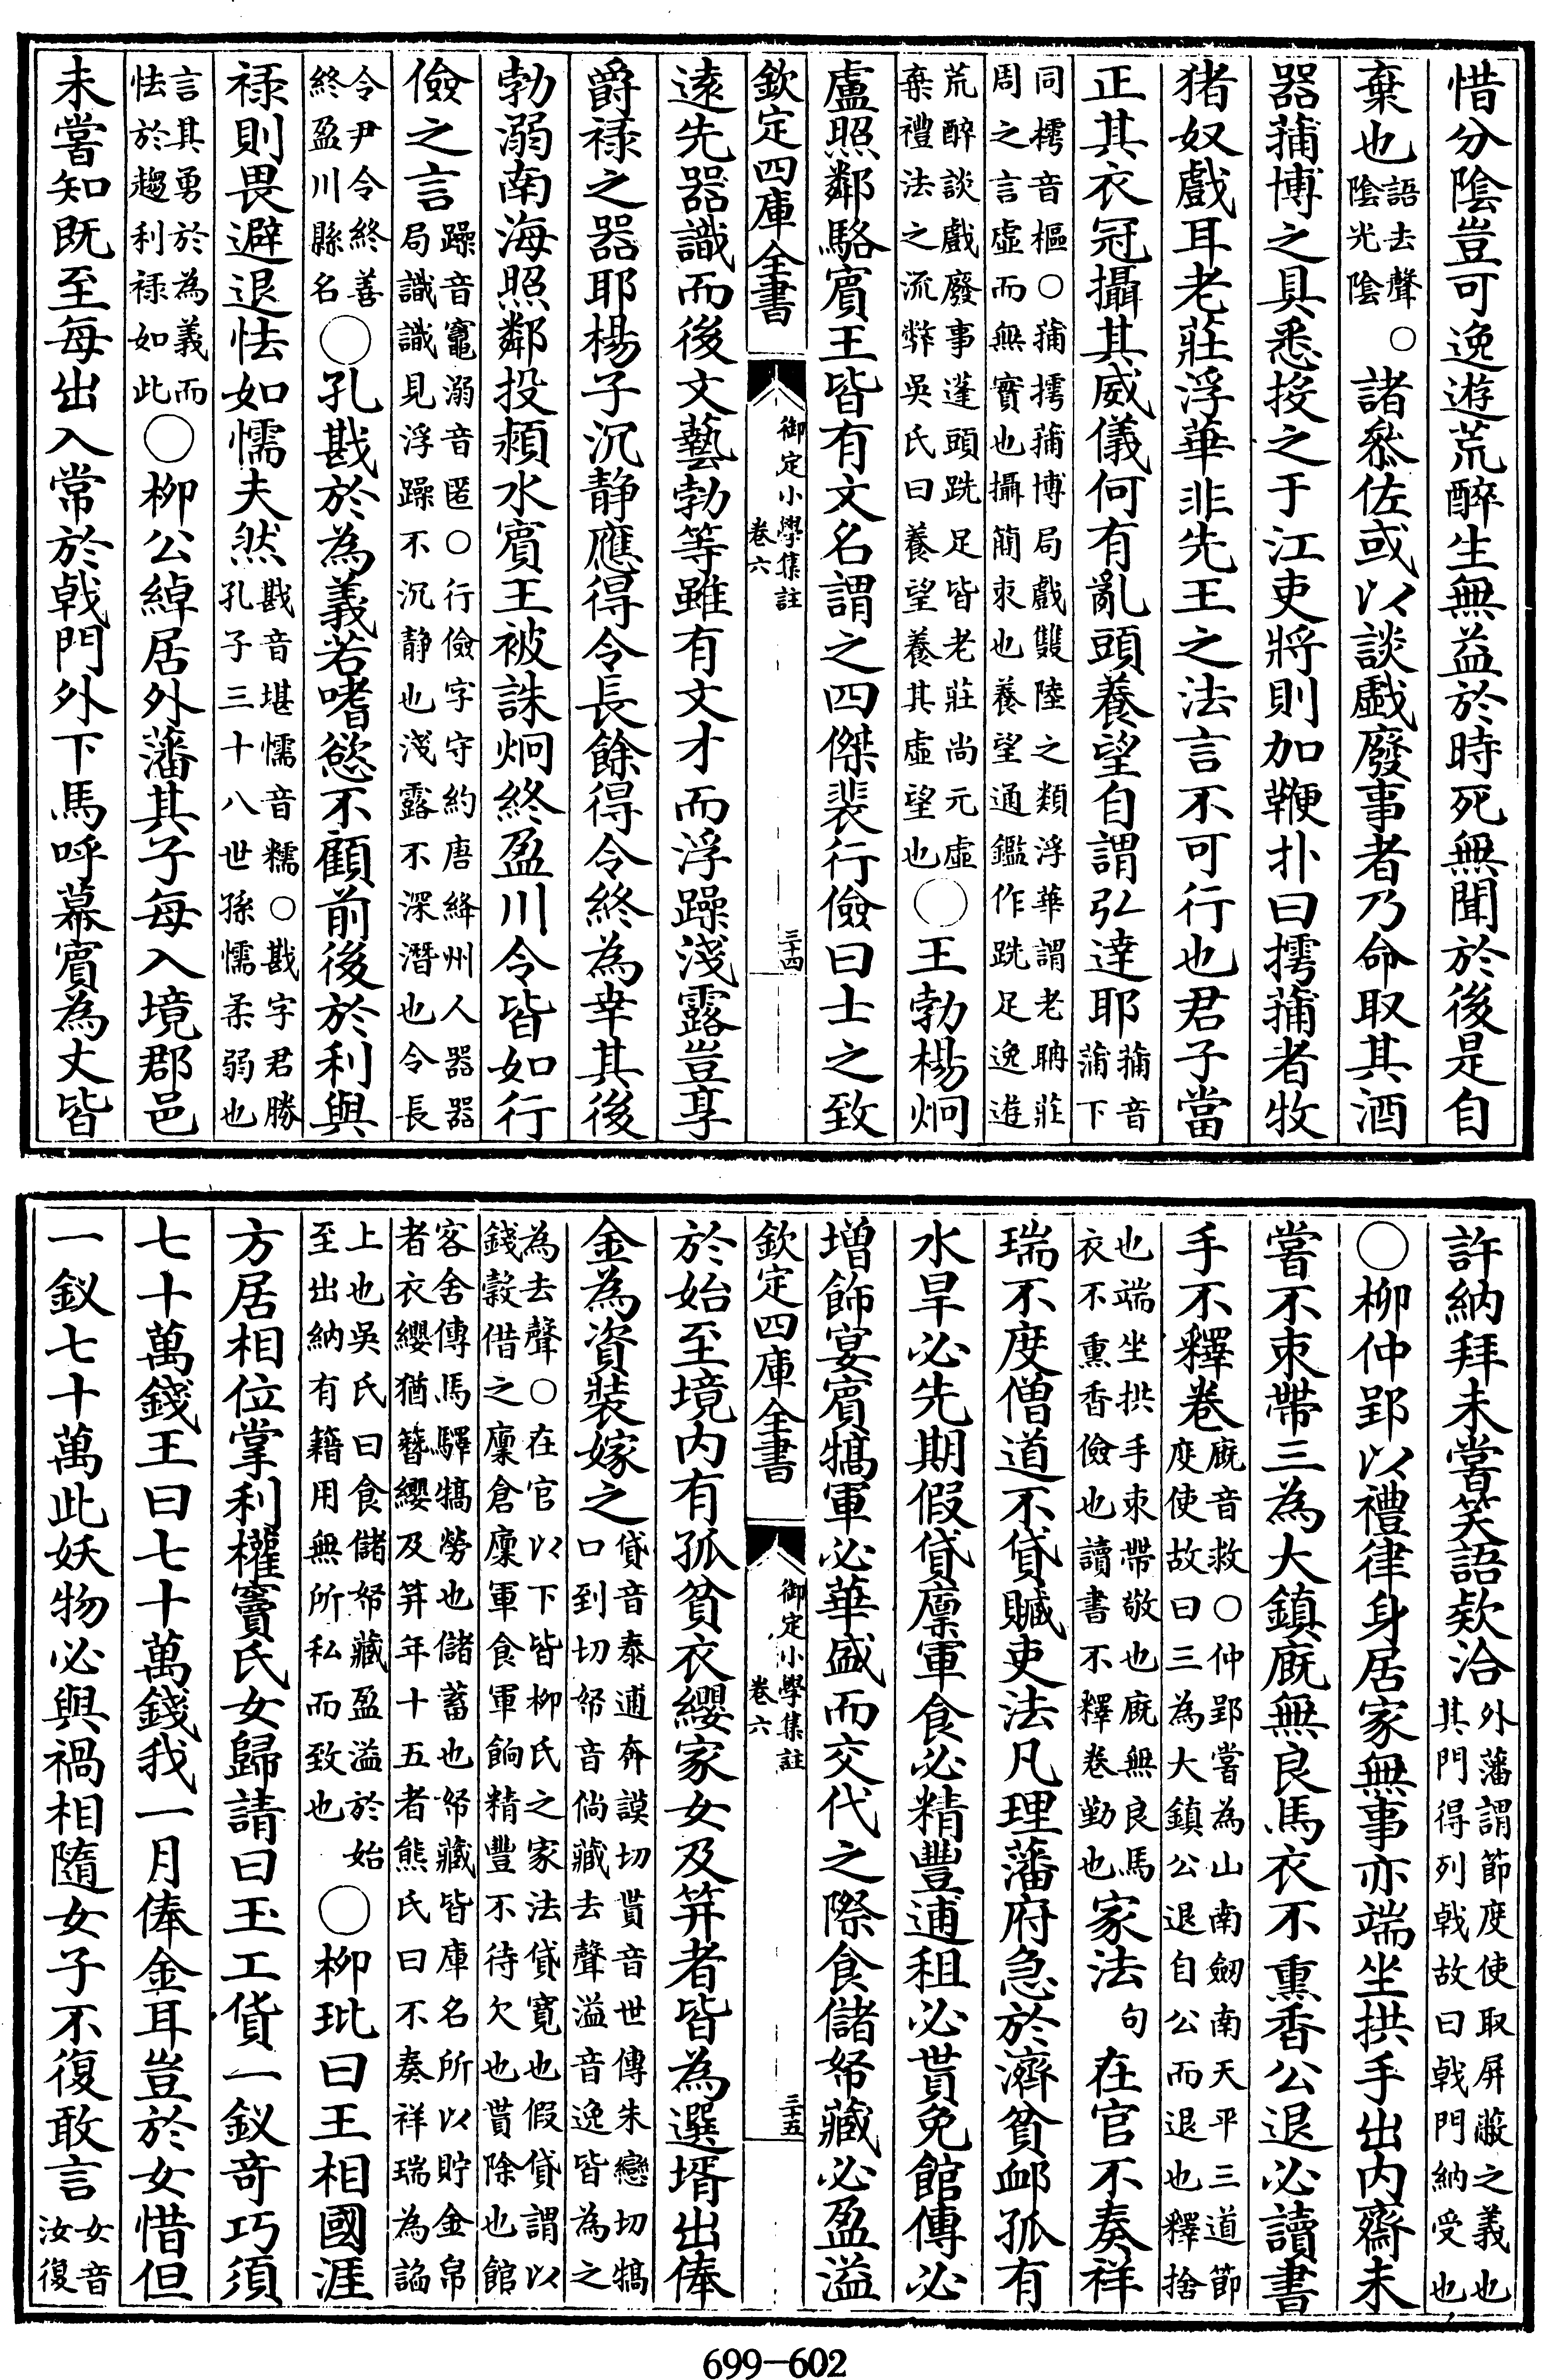 惜分陰豈可逸遊荒醉生無益於時死無聞於後是自
棄也語去聲○陰光陰諸叅佐或以談戱廢事者乃命取其酒
器蒱博之具悉投之于江吏將則加鞭扑曰摴蒱者牧
猪奴戲耳老莊浮華非先王之法言不可行也君子當
正其衣冠攝其威儀何有亂頭養望自謂弘達耶蒱音蒲下
同樗音樞○蒱摴蒱博局戲雙陸之類浮華謂老聃莊
周之言虛而無實也攝簡束也養望通鑑作跣足逸遊
荒醉談戲廢事蓬頭跣足皆老莊尚元虛
棄禮法之流弊吳氏曰養望養其虛望也○王勃楊炯
盧照鄰駱賓王皆有文名謂之四傑裴行儉曰士之致
欽定四庫全書
御定小學集註
卷六
三十四
逺先器識而後文藝勃等雖有文才而浮躁淺露豈享
爵禄之器耶楊子沉静應得令長餘得令終為幸其後
勃溺南海照鄰投潁水賓王被誅炯終盈川令皆如行
儉之言躁音竈溺音匿○行儉字守約唐絳州人器器
局識識見浮躁不沉静也淺露不深潛也令長
令尹令終善
終盈川縣名○孔戡於為義若嗜慾不顧前後於利與
禄則畏避退怯如懦夫然戡音堪懦音糯○戡字君勝孔子三十八世孫懦柔弱也
言其勇於為義而
怯於趨利禄如此○柳公綽居外藩其子每入境郡邑
未嘗知既至每出入常於戟門外下馬呼幕賓為丈皆
許納拜未嘗笑語欵洽外藩謂節度使取屏蔽之義也其門得列戟故曰戟門納受也
○柳仲郢以禮律身居家無事亦端坐拱手出内齋未
嘗不束帶三為大鎮廐無良馬衣不熏香公退必讀書
手不釋卷廐音救○仲郢嘗為山南劒南天平三道節度使故曰三為大鎮公退自公而退也釋捨
也端坐拱手束帶敬也廐無良馬
衣不熏香儉也讀書不釋卷勤也家法句在官不奏祥
瑞不度僧道不貸贓吏法凡理藩府急於濟貧䘏孤有
水旱必先期假貸廩軍食必精豐逋租必貰免館傳必
增飾宴賓犒軍必華盛而交代之際食儲帑藏必盈溢
欽定四庫全書
御定小學集註
卷六
三十五
於始至境内有孤貧衣纓家女及笄者皆為選壻出俸
金為資裝嫁之貸音泰逋奔謨切貰音世傳朱戀切犒口到切帑音倘藏去聲溢音逸皆為之
為去聲○在官以下皆柳氏之家法貸寛也假貸謂以
錢糓借之廩倉廩軍食軍餉精豐不待欠也貰除也館
客舍傳馬驛犒勞也儲蓄也帑藏皆庫名所以貯金帛
者衣纓猶簪纓及笄年十五者熊氏曰不奏祥瑞為諂
上也吳氏曰食儲帑藏盈溢於始
至出納有籍用無所私而致也○柳玭曰王相國涯
方居相位掌利權竇氏女歸請曰玉工貨一釵奇巧須
七十萬錢王曰七十萬錢我一月俸金耳豈於女惜但
一釵七十萬此妖物必與禍相隨女子不復敢言女音汝復
699—602